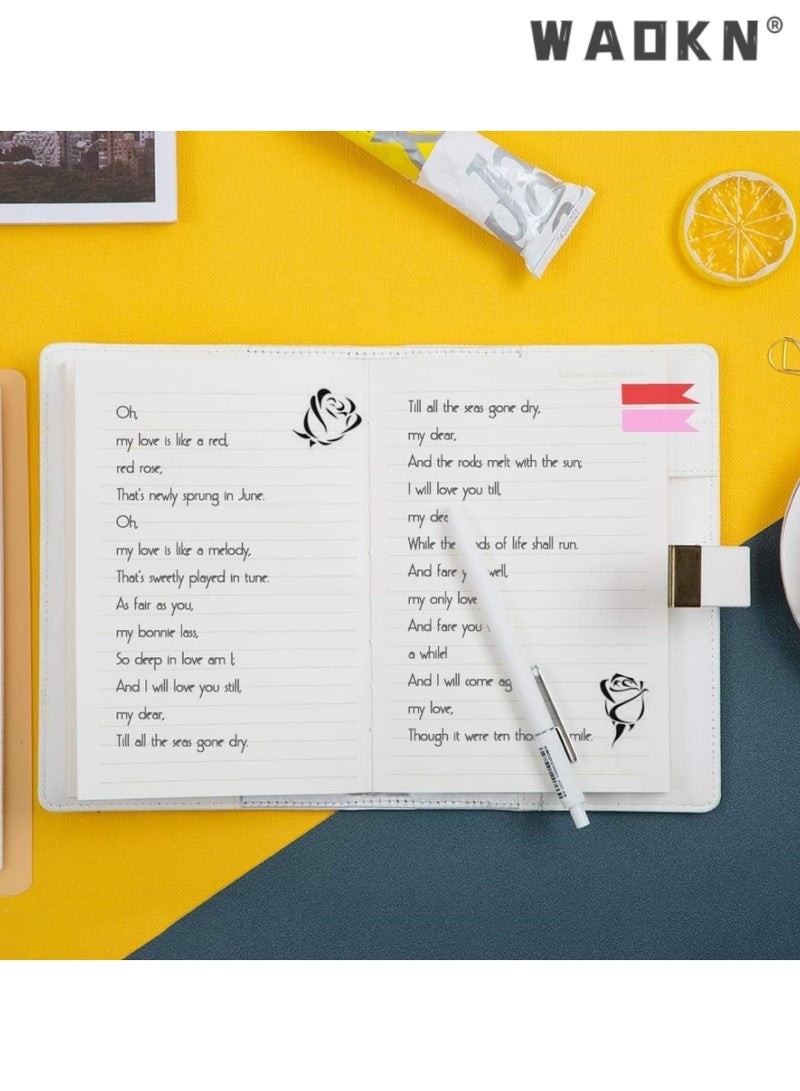 WAOKN®
Oh,
my love is like a red,
red rose,
That's newly sprung in June.
Oh,
my love is like a melody,
That's sweetly played in tune.
As fair as you,
my bonnie lass,
So deep in love am I;
And I will love you still,
my dear,
Till all the seas gone dry.
Till all the seas gone dry,
my dear,
And the rocks melt with the sun;
I will love you till,
my
While the of life shall run.
And fare
my only love
And fare you
a while!
And I will come
my love,
Though it were ten